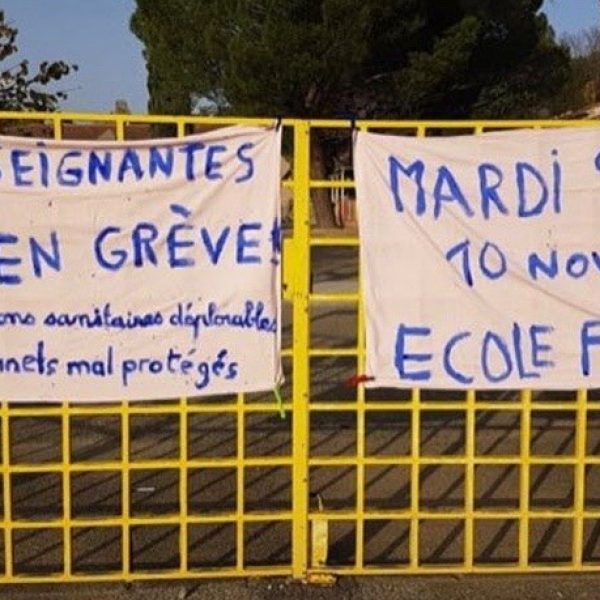 SEIGNANTES
EN GRÈVE!
ons sanitaires déplorables
nels mal protégés
MARDI
10 NOV
ECOLE F